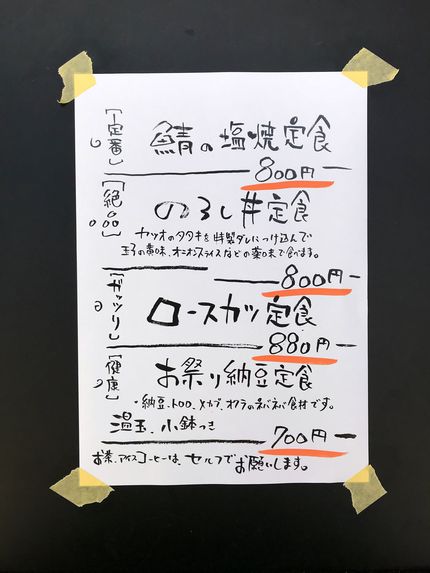 [定番]
鯖の塩焼定食
800円
[絶品]
のろし丼定食
カツオのタタキを特製ダレにつけ込んで
玉子の黄味、オニオンスライスなどの薬味で食べます。
800円
[ガッツリ]
ロースカツ定食
880円
[健康]
お祭り納豆定食
・納豆、トロロ、メカブ、オクラのネバネバ食材です。
温玉、小鉢つき
700円
お茶、アイスコーヒーは、セルフでお願いします。